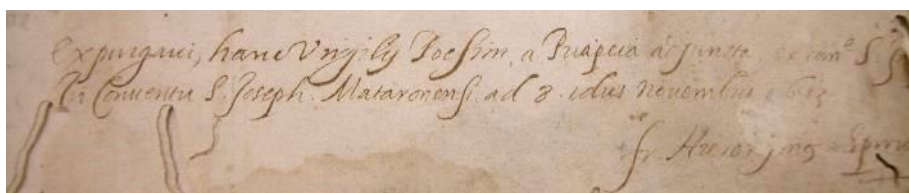 Expurgavi, hanc Virgilij Poesim, a Priapeia adjuncta ex com.º S. S
In Conventu S. Joseph. Mataronensi ad 8. idus Novembris 1613
fr Hieronymus